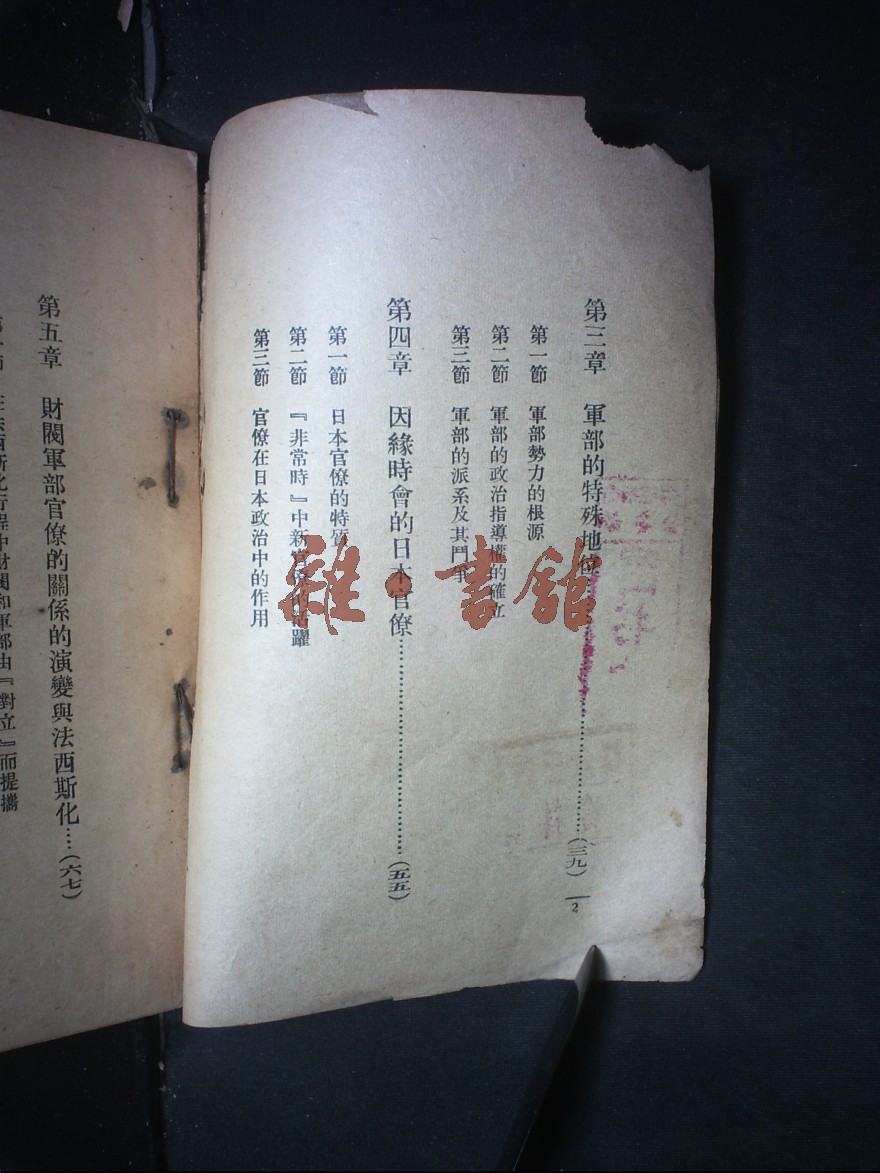 第三章 軍部的特殊地位……(三九)
第一節 軍部勢力的根源
第二節 軍部的政治指導權的確立
第三節 軍部的派系及其鬥爭
第四章 因緣時會的日本官僚……(五五)
第一節 日本官僚的特質
第二節 『非常時』中新官僚的活躍
第三節 官僚在日本政治中的作用
2
第五章 財閥軍部官僚的關係的演變與法西斯化……(六七)
第一節 在法西斯化行程中財閥和軍部由『對立』而提攜
雜·書館